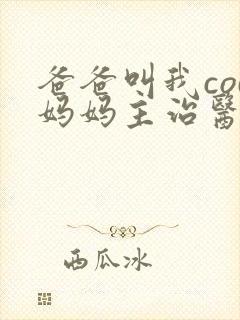 爸爸叫我co
妈妈主治醫
西瓜冰